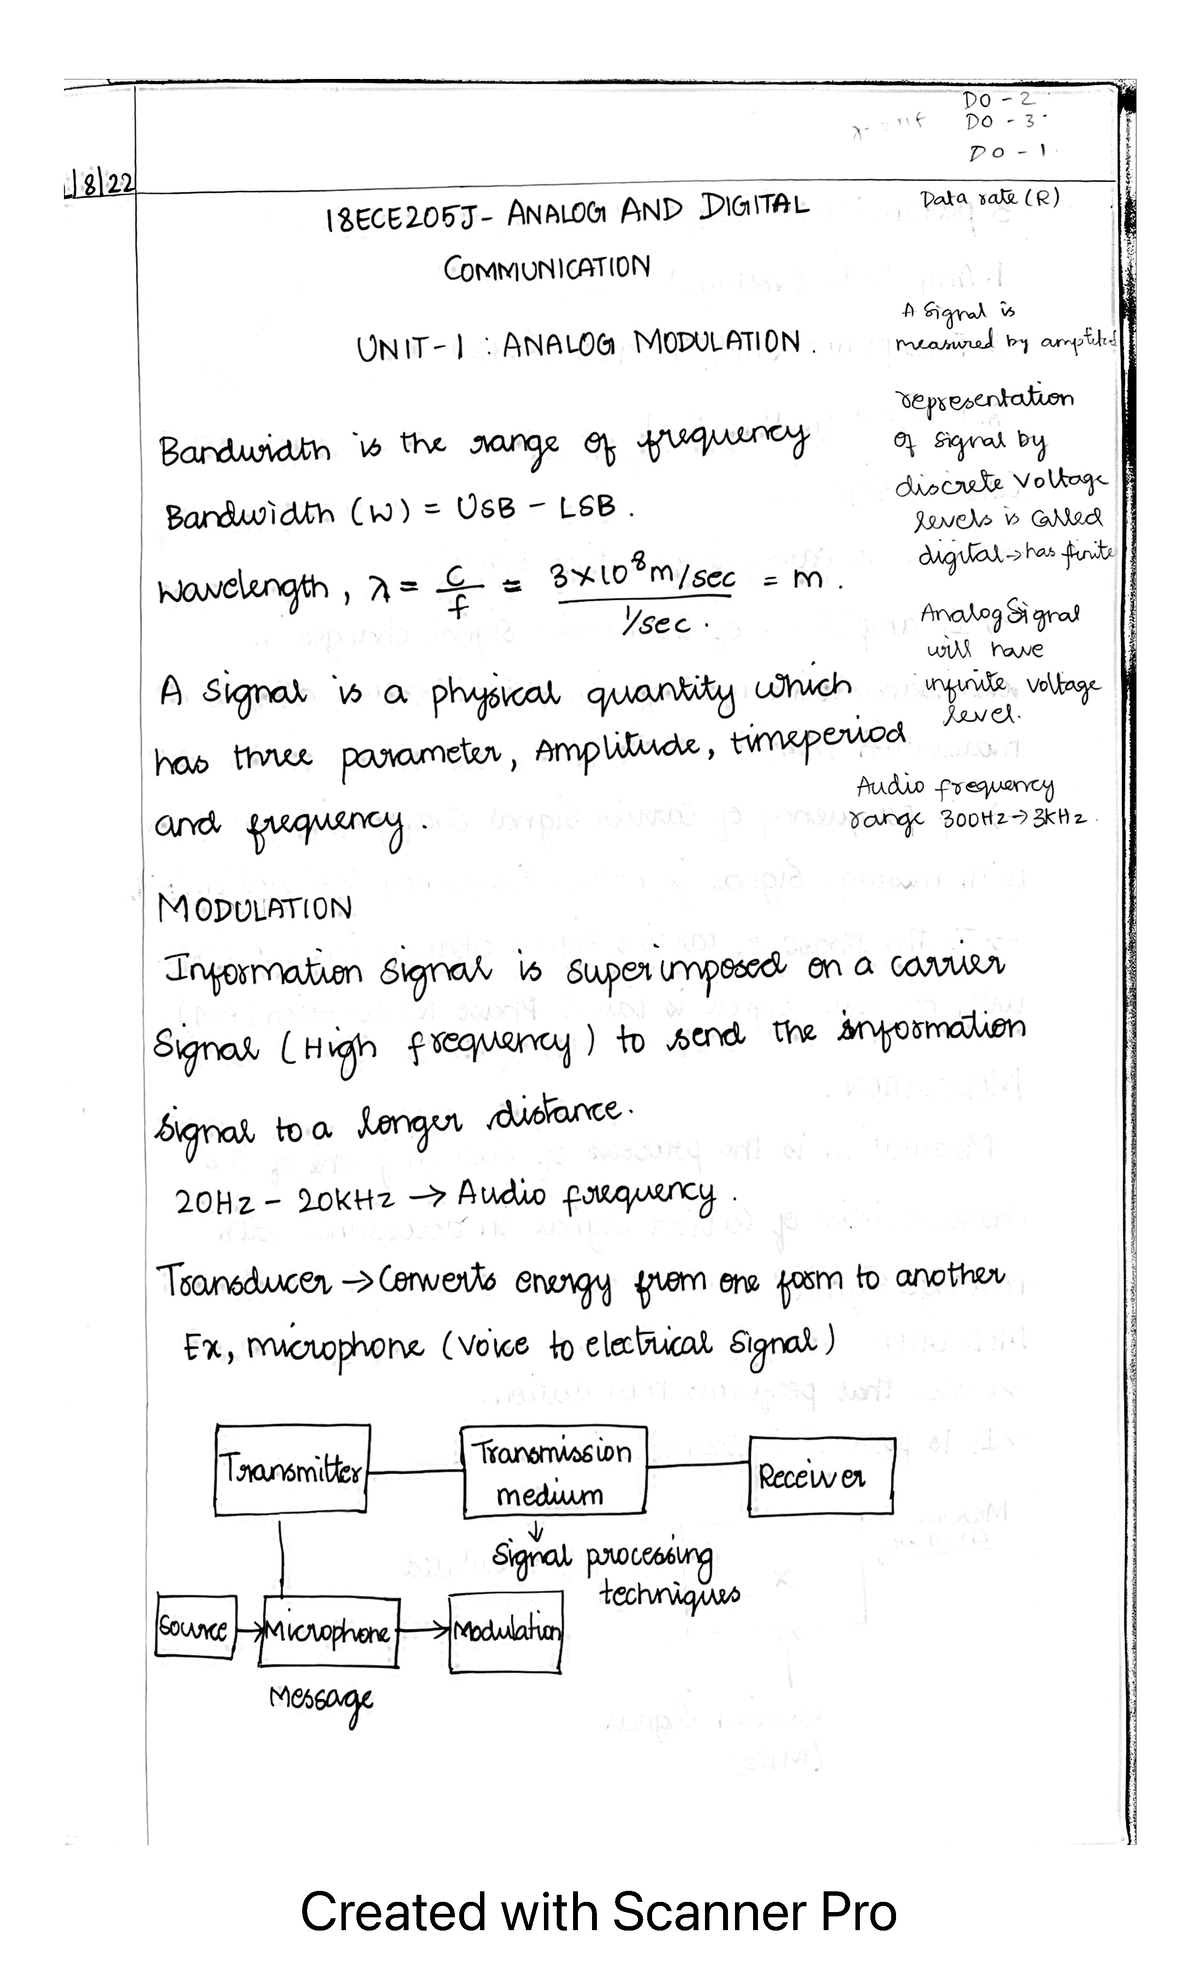 DO - 2
DO - 3
DO - 1
/8/22
Data rate (R)
18ECE205J- ANALOG AND DIGITAL
COMMUNICATION
UNIT-1 : ANALOG MODULATION.
A signal is
measured by
representation
of signal by
discrete voltage
levels is called
digital→has finite
Analog Signal
will have
infinite voltage
level.
Audio frequency
range 300Hz→3kHz.
Bandwidth is the range of frequency
Bandwidth (W) = USB - LSB.
Wavelength, λ = c/f = 3×10⁸m/sec / 1/sec. = m.
A signal is a physical quantity which
has three parameter, Amplitude, timeperiod
and frequency.
MODULATION
Information signal is superimposed on a carrier
signal (High frequency) to send the information
signal to a longer distance.
20Hz - 20KHz → Audio frequency.
Transducer → Converts energy from one form to another
Ex, microphone (Voice to electrical signal)
Transmitter
Transmission
medium
Receiver
Signal processing
techniques
Source → Microphone → Modulation
Message
Created with Scanner Pro